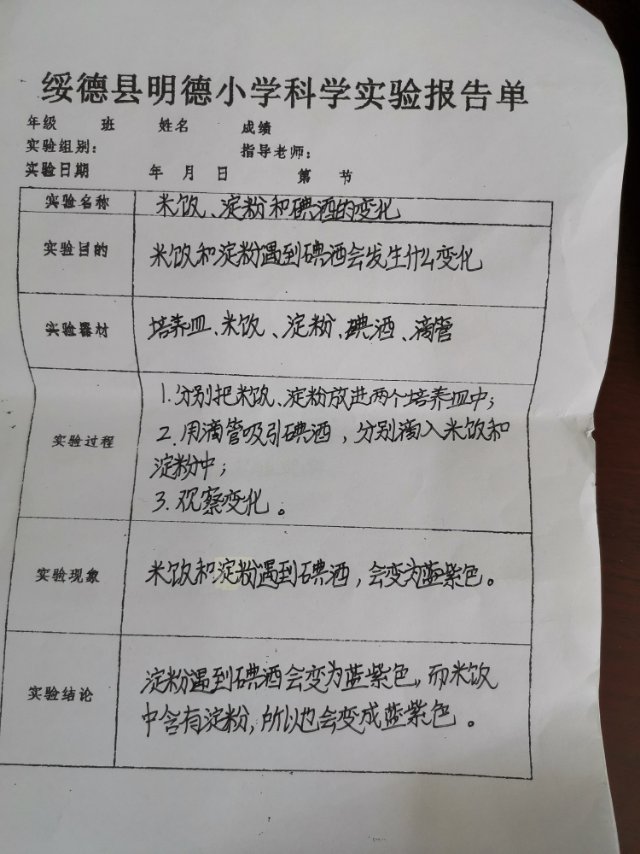 绥德县明德小学科学实验报告单
年级 班 姓名 成绩
实验组别： 指导老师：
实验日期 年 月 日 第 节
实验名称 米饭、淀粉和碘酒的变化
实验目的 米饭和淀粉遇到碘酒会发生什么变化
实验器材 培养皿、米饭、淀粉、碘酒、滴管
实验过程
1.分别把米饭、淀粉放进两个培养皿中；
2.用滴管吸引碘酒，分别滴入米饭和
淀粉中；
3.观察变化。
实验现象 米饭和淀粉遇到碘酒，会变为蓝紫色。
实验结论
淀粉遇到碘酒会变为蓝紫色，而米饭
中含有淀粉，所以也会变成蓝紫色。